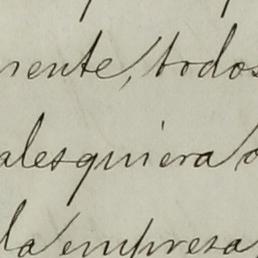 nente, todos
alesquiera o
la empresa,